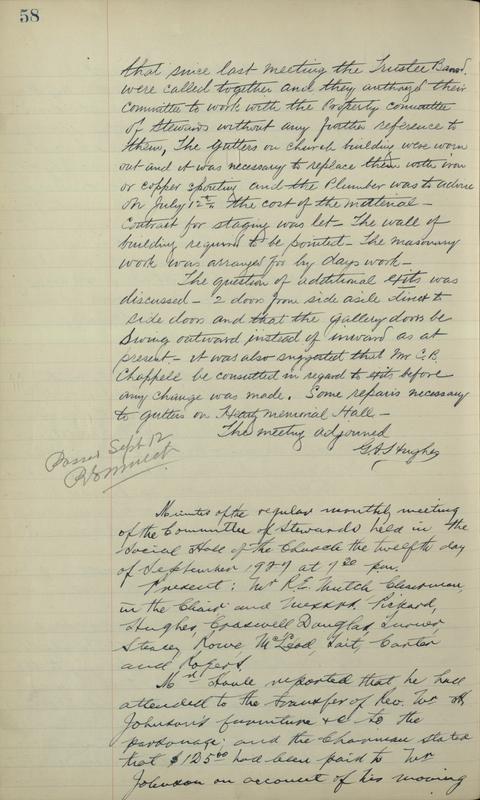 58
that since last meeting the Trustee Board.
were called together and they authorized their
committee to work with the Property committee
of Stewards without any further reference to
them, The gutters on church building were worn
out and it was necessary to replace them with iron
or copper spouting and the Plumber was to advise
on July 12th the cost of the material -
Contract for staging was let - The wall of
building required to be pointed - The masonry
work was arranged for by days work -
The question of additional exits was
discussed - 2 doors from side aisle direct to
side doors and that the gallery doors be
swung outward instead of inward as at
present - it was also suggested that Mr C.B.
Chappell be consulted in regard to exits before
any change was made. Some repairs necessary
to gutters on Heartz Memorial Hall -
The meeting adjourned
G.A.S Hughes
Passed Sept 12
R E Mutch
Minutes of the regular monthly meeting
of the Committee of Stewards held in the
Social Hall of the Church the twelfth day
of September 1927 at 7 30 p.m.
Present: Mr R.E. Mutch Chairman,
in the Chair and Messrs. Pickard,
Hughes, Craswell Douglas, Turner,
Stacey, Rowe, McLeod, Tait, Carter
and Rogers,
Mr reported that he had
attended to the transfer of Rev. Mr
Johnson's furniture &c to the
parsonage; and the Chairman stated
that $125 00 had been paid to Mr
Johnson on account of his moving